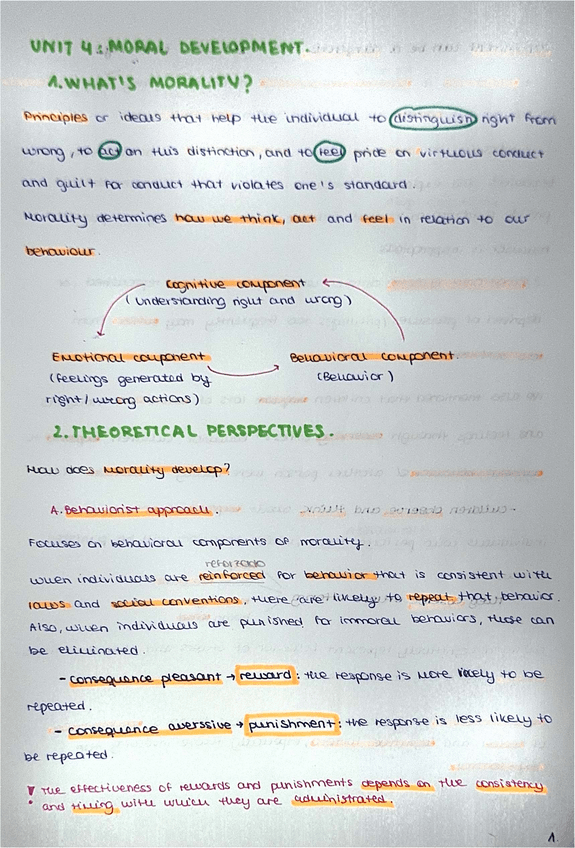 UNIT 4: MORAL DEVELOPMENT.
1. WHAT'S MORALITY?
Principles or ideals that help the individual to distinguish right from
wrong, to act on this distinction, and to feel pride on virtuous conduct
and guilt for conduct that violates one's standard.
Morality determines how we think, act and feel in relation to our
behaviour.
Cognitive component
(understanding right and wrong)
Emotional component
Behavioral component.
(feelings generated by
(Behavior)
right/wrong actions)
2. THEORETICAL PERSPECTIVES.
How does morality develop?
A. Behaviorist approach.
Focuses on behavioral components of morality.
reforzado
When individuals are reinforced for behavior that is consistent with
laws and social conventions, there are likely to repeat that behavior.
Also, when individuals are punished for immoral behaviors, those can
be eliminated.
- consequance pleasant → reward: the response is more likely to be
repeated.
- consequance averssive → punishment: the response is less likely to
be repeated.
! The effectiveness of rewards and punishments depends on the consistency
and timing with which they are administrated.
1.